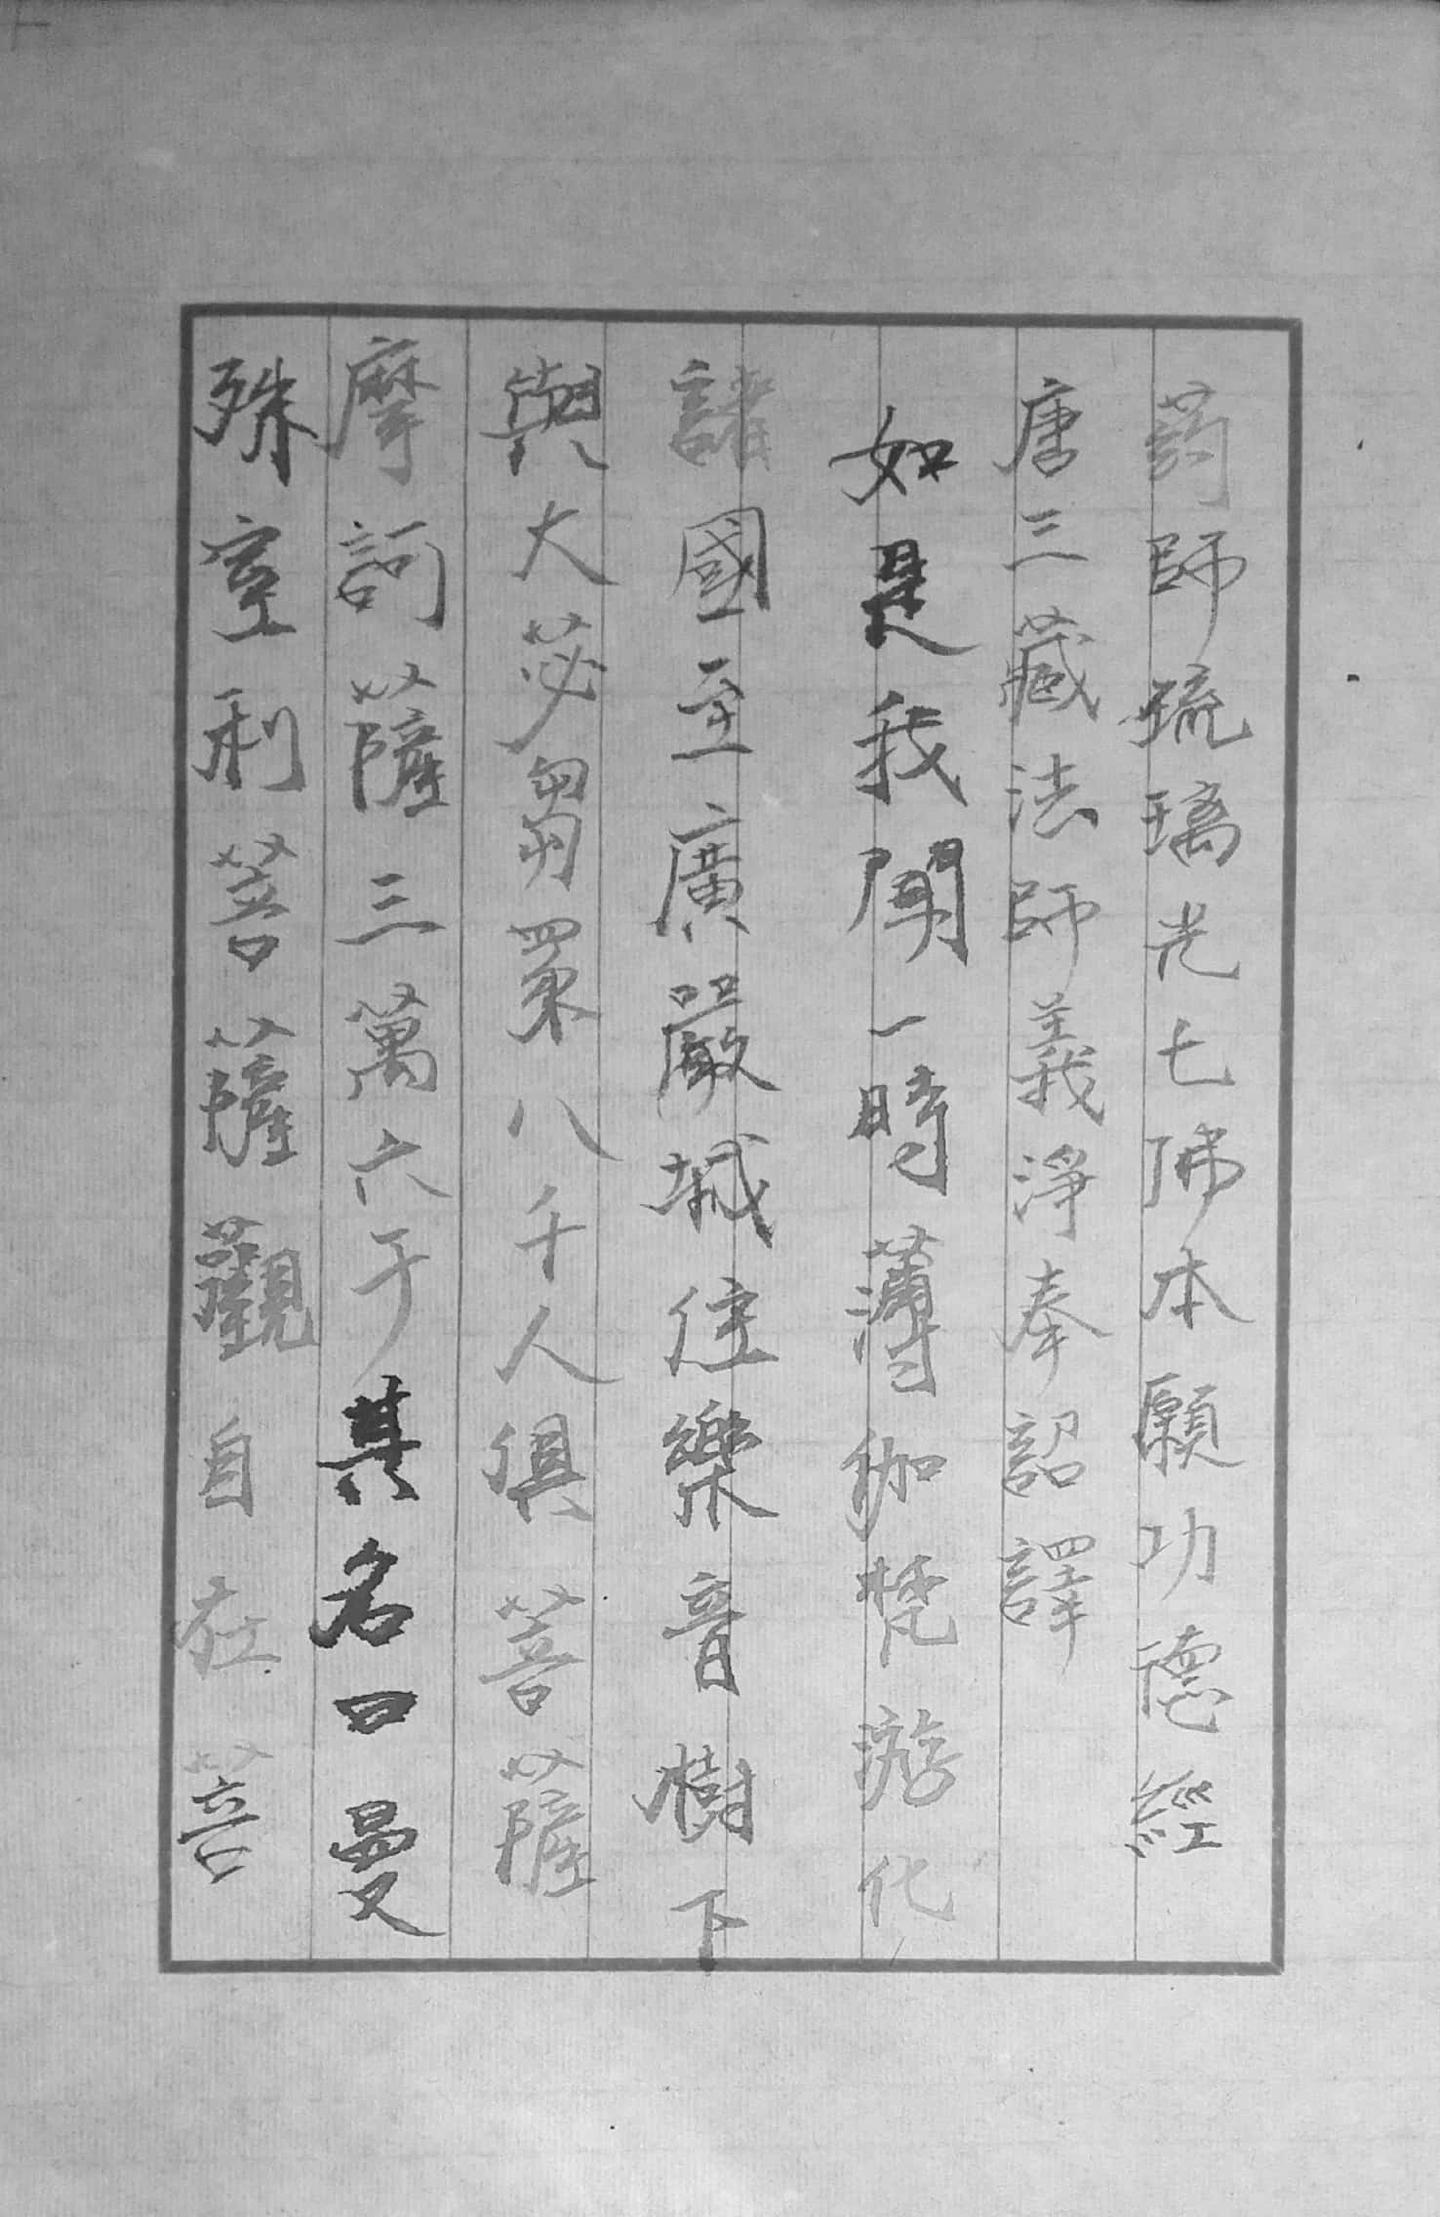 药師琉璃光七佛本願功德經
唐三藏法師義淨奉詔譯
如是我聞一時薄伽梵游化
諸國至廣嚴城住樂音樹下
與大苾芻眾八千人俱菩薩
摩訶薩三萬六千其名曰曼
殊室利菩薩觀自在菩